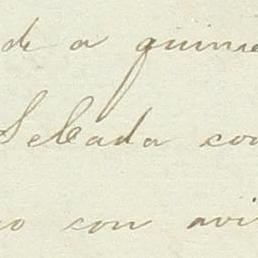 de a quinie
Sebada con
o con avi